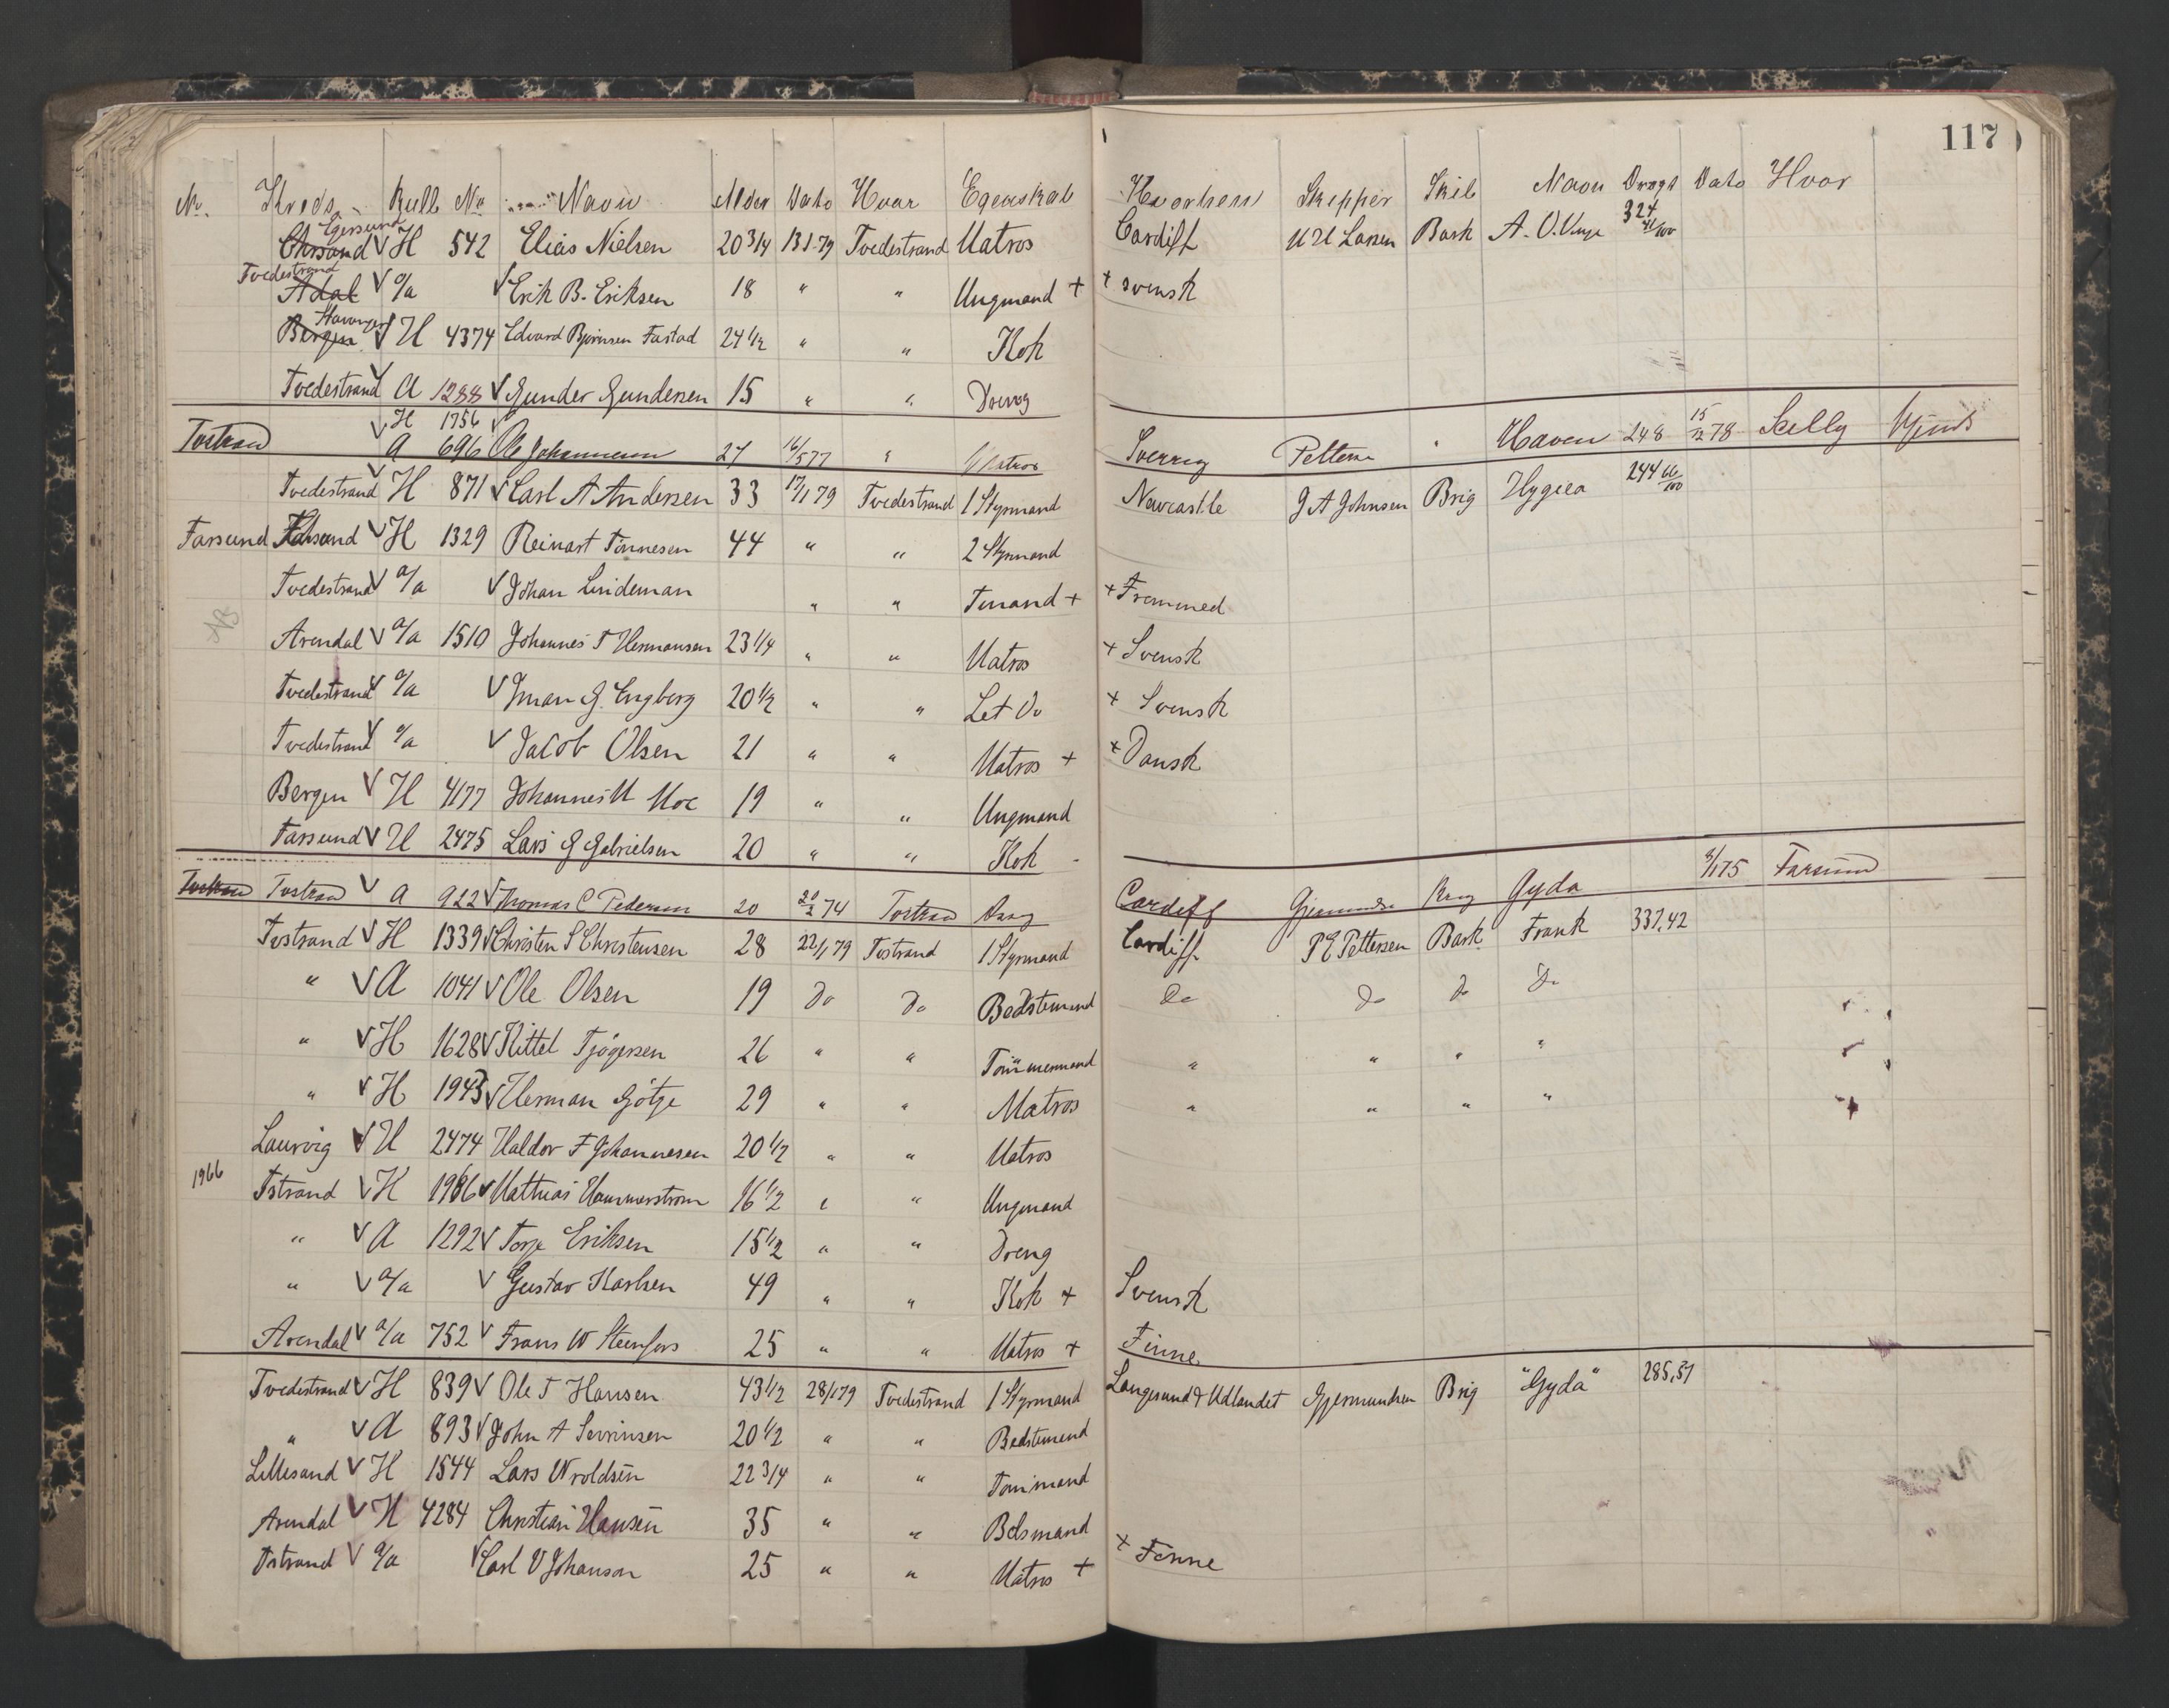 117
No. Kreds Rulle No Navn Alder Dato Hvor Egenskab Hvorhen Skipper Skib Navn Drægt Dato Hvor
Egersund
Chrsand V H 542 Elias Nielsen 20 3/4 13 1-79 Tvedestrand Matros Cardiff Larsen Bark A. O. 324 41/100
Tvedestrand
Adal V a/a V Erik B. Eriksen 18 " " Ungmand + + svensk
Stavanger
Bergen V H 4374 Edvard Bjørnsen Fastad 24 1/2 " " Kok
Tvedestrand V A 1288 V Gunder Gundersen 15 " " Dreng
V H 1756 V
Tvstrand A 696 Ole Johannesen 27 16/5 77 " Matros Sverrig Petterson " Haven 248 15/12 78 Skelly
Tvedestrand V H 871 V Carl A Andersen 33 17/1 79 Tvedestrand 1 Styrmand Newcastle J A Johnsen Brig Hygiea 244 66/100
Farsund Farsund V H 1329 Reinart Tønnesen 44 " " 2 Styrmand
Tvedestrand V a/a V Johan Lindeman " " Tmand + + Fremmed
Arendal V a/a 1510 Johannes T Hermansen 23 1/4 " " Matros + Svensk
Tvedestrand V a/a V G. Engberg 20 1/2 " " Let Do + Svensk
Tvedestrand V a/a V Jacob Olsen 21 " " Matros + + Dansk
Bergen V H 4177 Johannes M Moe 19 " " Ungmand
Farsund V H 2475 Lars G Gabrielsen 20 " " Kok
Tvstrand Tvstrand V A 922 V Thomas C Pedersen 20 20/2 74 Tvstrand Dreng Cardiff Gjermundsen Brig Gyda 9/1 75 Farsund
Tvstrand V H 1339 V Christen S Christensen 28 22/1 79 Tvstrand 1 Styrmand Cardiff P E Pettersen Bark Frank 337,42
" V A 1041 V Ole Olsen 19 Do Do Bedstemand Do Do Do Do
" V H 1628 V Kittel Tjøgersen 26 " " Tømmermand " " " "
" V H 1943 V Herman Götze 29 " " Matros " " " "
Laurvig V H 2474 Haldor F Johannesen 20 1/2 " " Matros
1966 Tstrand V H 1986 V Mathias Hammerstrøm 16 1/2 " " Ungmand
" V A 1292 V Terje Eriksen 15 1/2 " " Dreng
" V a/a V Gustav Karlsen 49 " " Kok + Svensk
Arendal V a/a 752 V Frans W Stenfors 25 " " Matros + Finne
Tvedestrand V H 839 V Ole T Hansen 43 1/2 28/1 79 Tvedestrand 1 Styrmand Langesund & Udlandet Gjermundsen Brig "Gyda" 285,51
" V A 893 V John A Severinsen 20 1/2 " " Bedstemand
Lillesand V H 1544 Lars Wroldsen 22 3/4 " " Tømmand
Arendal V H 4284 Christian Hansen 35 " " Bdsmand
Tstrand V a/a V Carl V Johanson 25 " " Matros + + Finne